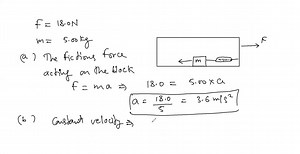 F = 18.0N
m = 5.00kg
(a) The fictious force
acting on the block
F = ma ⇒ 18.0 = 5.00 × a
a = 18.0/5 = 3.6 m/s²
(b) Constant velocity ⇒
m
F